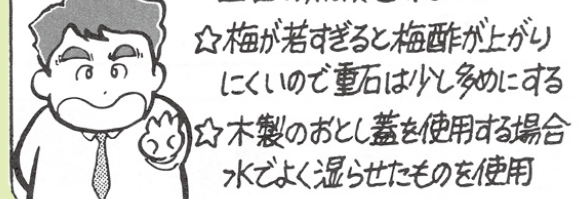 ☆梅が若すぎると梅酢が上がり
にくいので重石は少し多めにする
☆木製のおとし蓋を使用する場合
水でよく湿らせたものを使用